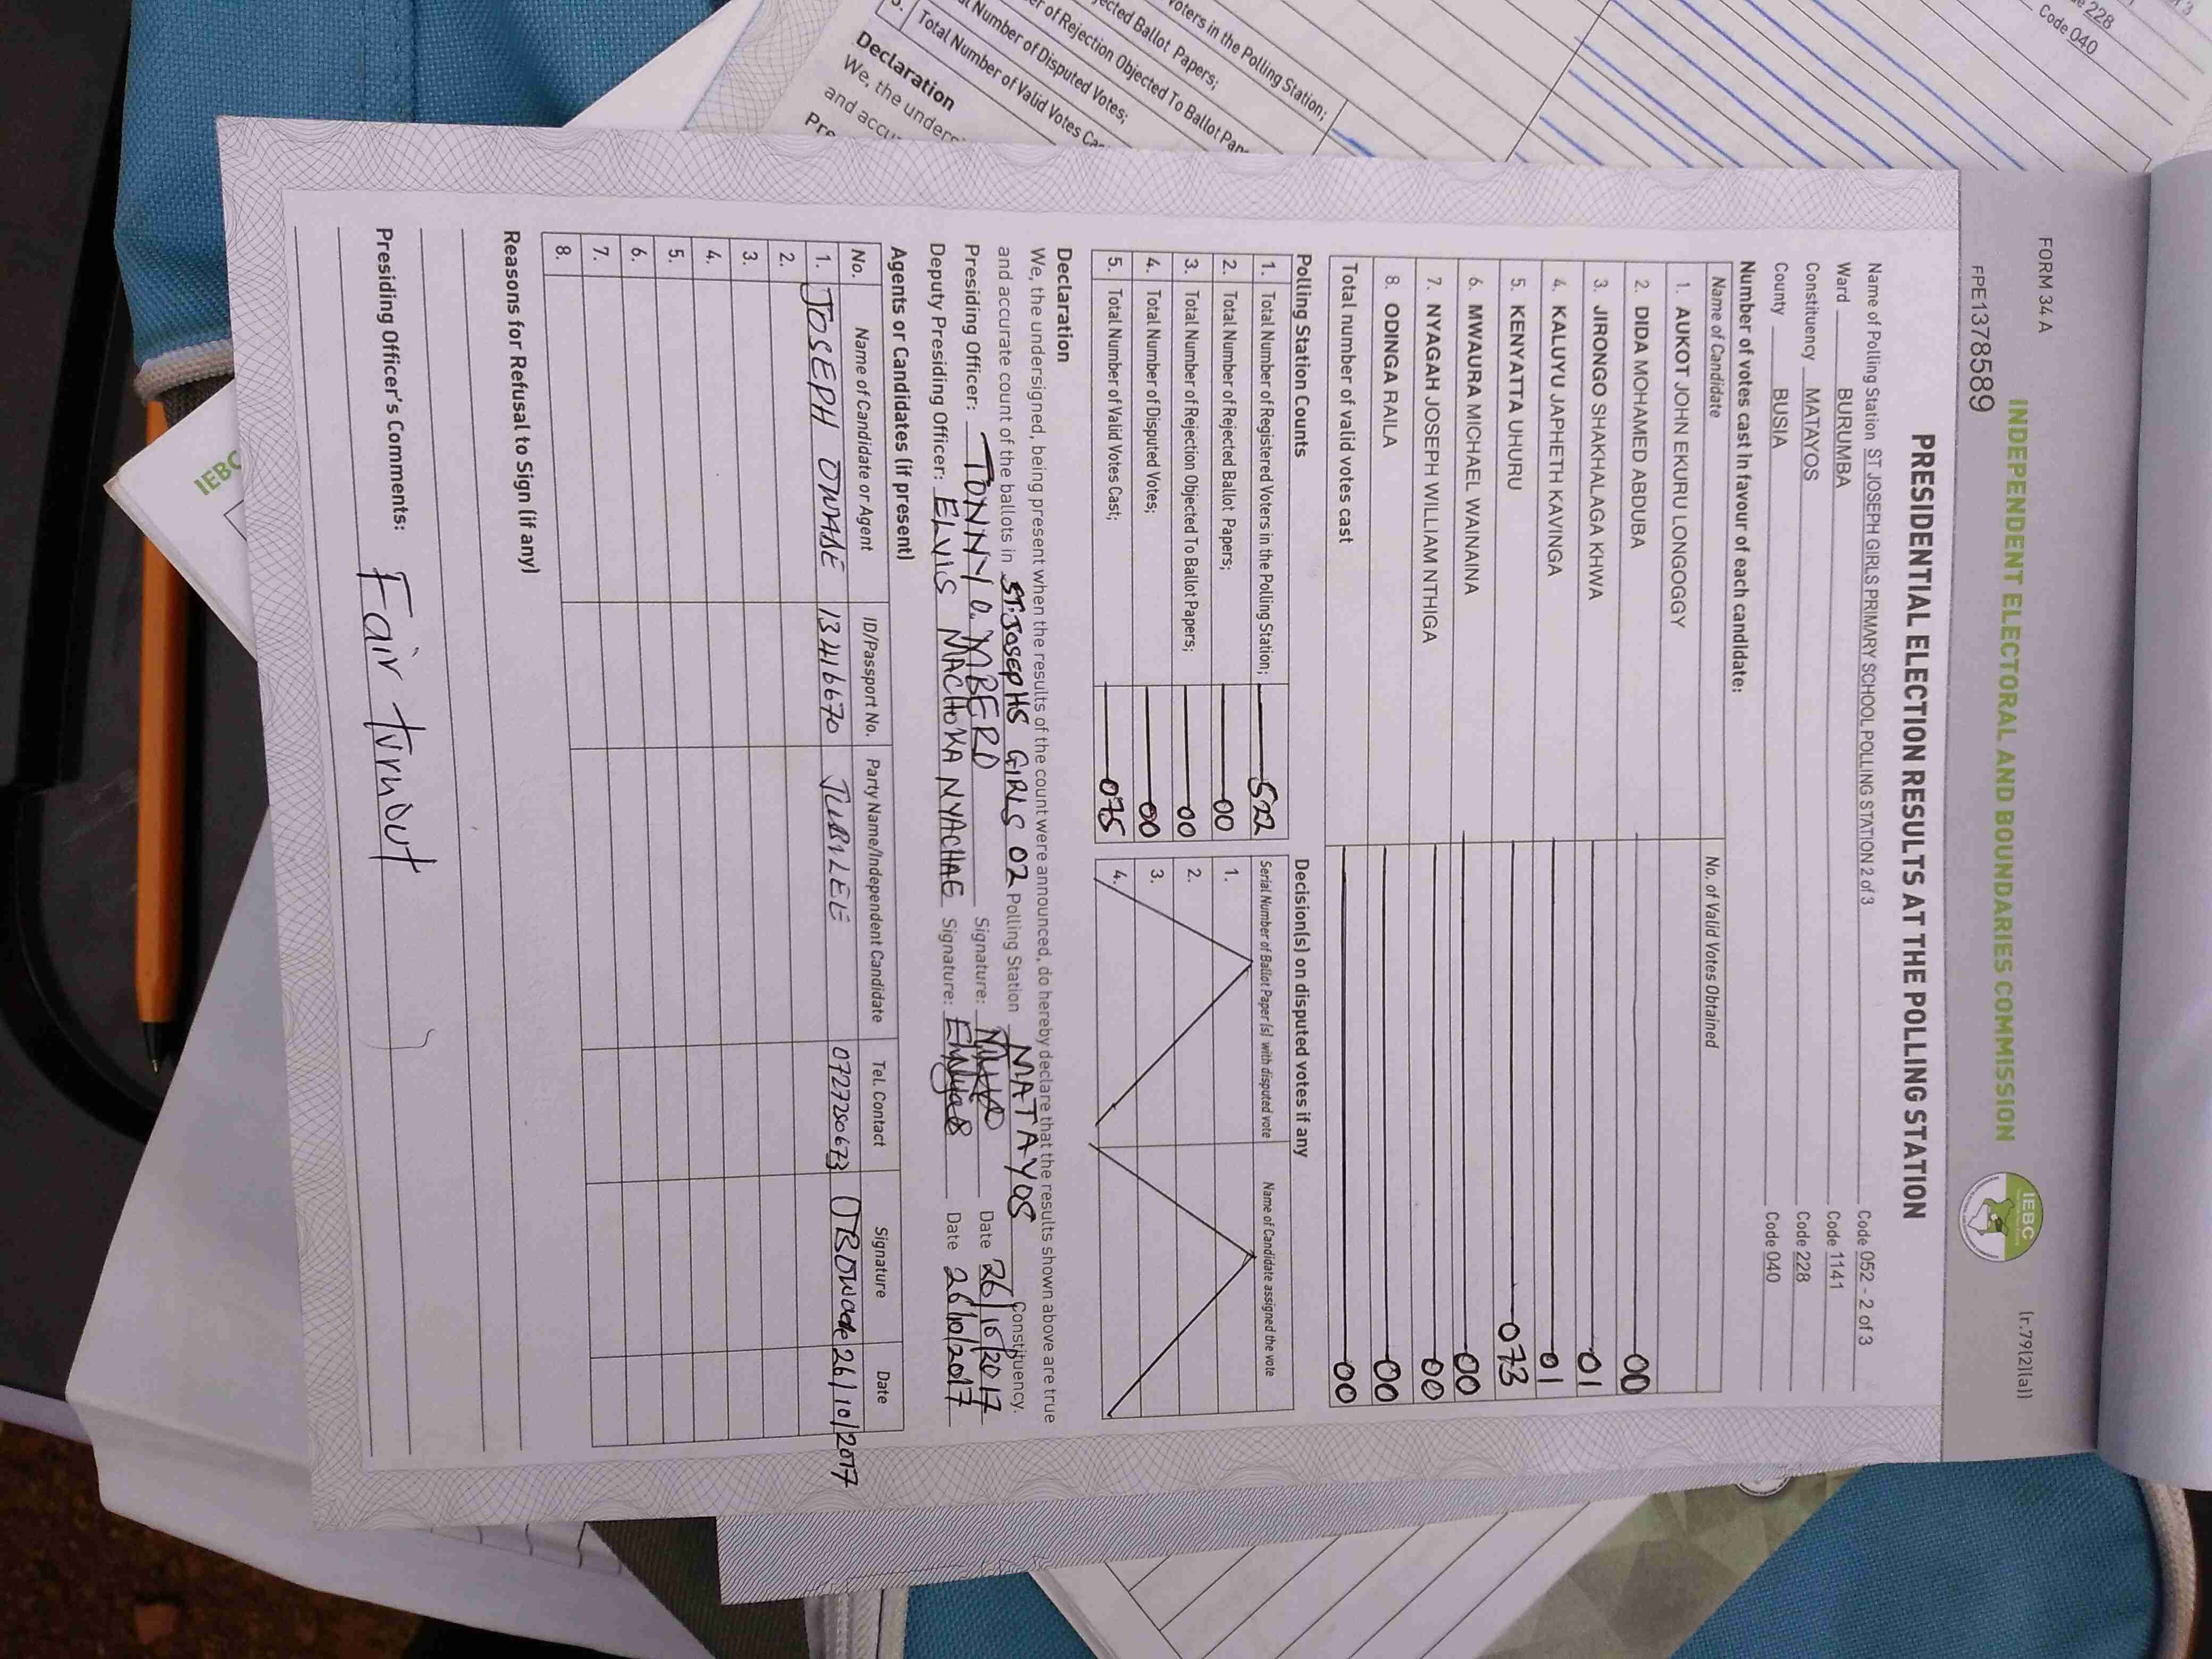 FORM 34 A
(r.79(2)(a))
INDEPENDENT ELECTORAL AND BOUNDARIES COMMISSION
IEBC
FPE1378589
PRESIDENTIAL ELECTION RESULTS AT THE POLLING STATION
Name of Polling Station ST JOSEPH GIRLS PRIMARY SCHOOL POLLING STATION 2 of 3 Code 052 - 2 of 3
Ward BURUMBA Code 1141
Constituency MATAYOS Code 228
County BUSIA Code 040
Number of votes cast in favour of each candidate:
Name of Candidate No. of Valid Votes Obtained
1. AUKOT JOHN EKURU LONGOGGY
2. DIDA MOHAMED ABDUBA 00
3. JIRONGO SHAKHALAGA KHWA 01
4. KALUYU JAPHETH KAVINGA 01
5. KENYATTA UHURU 073
6. MWAURA MICHAEL WAINAINA 00
7. NYAGAH JOSEPH WILLIAM NTHIGA 00
8. ODINGA RAILA 00
Total number of valid votes cast 00
Polling Station Counts
1. Total Number of Registered Voters in the Polling Station; 522
2. Total Number of Rejected Ballot Papers; 00
3. Total Number of Rejection Objected To Ballot Papers; 00
4. Total Number of Disputed Votes; 00
5. Total Number of Valid Votes Cast; 075
Decision(s) on disputed votes if any
Serial Number of Ballot Paper (s) with disputed vote Name of Candidate assigned the vote
1.
2.
3.
4.
Declaration
We, the undersigned, being present when the results of the count were announced, do hereby declare that the results shown above are true
and accurate count of the ballots in ST. JOSEPHS GIRLS 02 Polling Station MATAYOS Constituency.
Presiding Officer: TONNY O. MBERO Signature: Date 26/10/2017
Deputy Presiding Officer: ELVIS MACHOKA NYACHAE Signature: Date 26/10/2017
Agents or Candidates (if present)
No. Name of Candidate or Agent ID/Passport No. Party Name/Independent Candidate Tel. Contact Signature Date
1. JOSEPH OWADE 13416670 JUBILEE 0727280673 26/10/2017
2.
3.
4.
5.
6.
7.
8.
Reasons for Refusal to Sign (if any)
Presiding Officer's Comments: Fair turnout
Code 228
Code 040
voters in the Polling Station;
ected Ballot Papers;
er of Rejection Objected To Ballot Pap
al Number of Disputed Votes;
5. Total Number of Valid Votes Ca
Declaration
We, the unders
and accu
Pre
IEBC